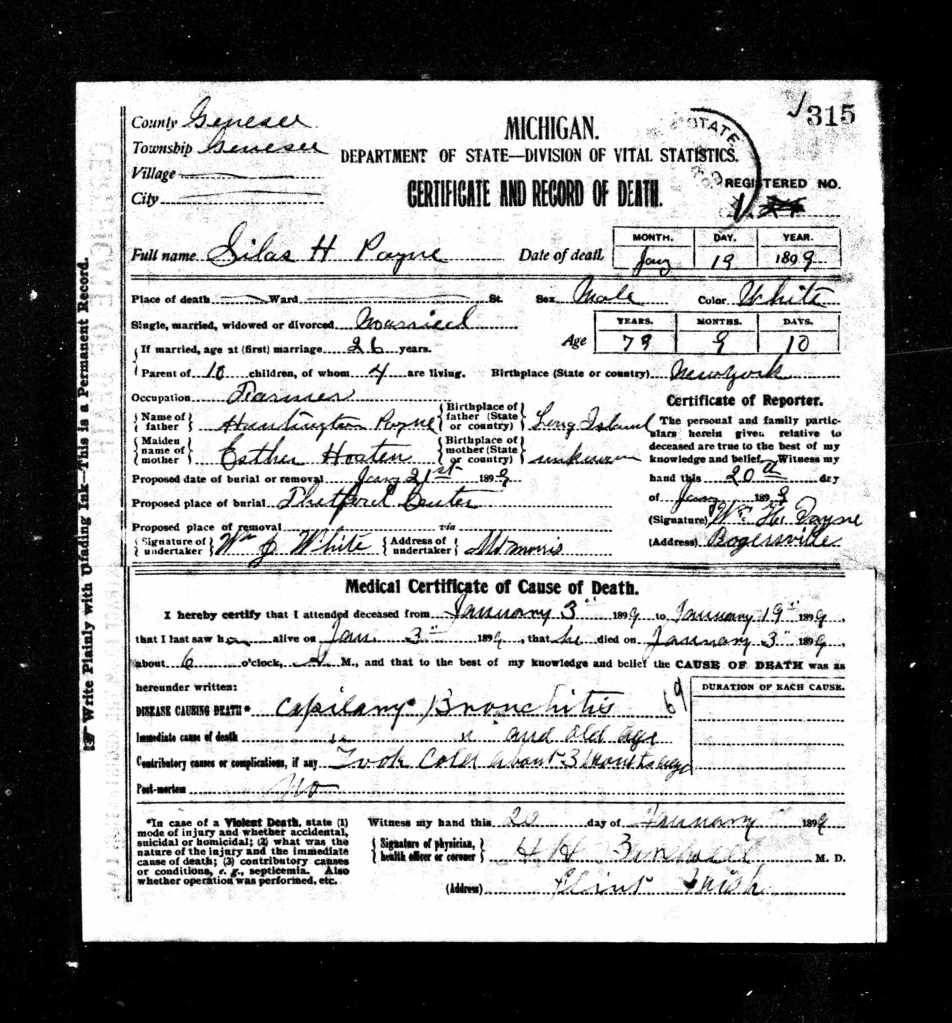 315
County Genesee
MICHIGAN.
STATE
Township Genesee
DEPARTMENT OF STATE—DIVISION OF VITAL STATISTICS.
Village
City
CERTIFICATE AND RECORD OF DEATH.
REGISTERED NO.
Full name Silas H Payne
Date of death
MONTH. DAY. YEAR.
Jany 19 1899
Place of death Ward St. Sex Male Color White
Single, married, widowed or divorced Married
Age
YEARS. MONTHS. DAYS.
79 9 10
If married, age at (first) marriage 26 years.
Parent of 10 children, of whom 4 are living. Birthplace (State or country) Newyork
Occupation Farmer
Name of father Huntington Payne Birthplace of father (State or country) Long Island
Maiden name of mother Esther Hosten Birthplace of mother (State or country) unknown
Proposed date of burial or removal Jany 21st 1899
Proposed place of burial Thetford Center
Proposed place of removal via
Signature of undertaker Wm J White Address of undertaker Mt morris
Certificate of Reporter.
The personal and family partic-
ulars herein given relative to
deceased are true to the best of my
knowledge and belief. Witness my
hand this 20th day
of Jany 1899
(Signature) Wm H Payne
(Address) Rogersville
Medical Certificate of Cause of Death.
I hereby certify that I attended deceased from January 3" 1899 to January 19" 1899,
that I last saw h alive on Jan 3" 1899, that he died on January 3" 1899,
about 6 o'clock, A M., and that to the best of my knowledge and belief the CAUSE OF DEATH was as
hereunder written:
DURATION OF EACH CAUSE.
DISEASE CAUSING DEATH* Capilary Bronchities 69
Immediate cause of death " " and old age
Contributory causes or complications, if any Took Cold about 3 months ago
Post-mortem No
*In case of a Violent Death, state (1)
mode of injury and whether accidental,
suicidal or homicidal; (2) what was the
nature of the injury and the immediate
cause of death; (3) contributory causes
or conditions, e. g., septicemia. Also
whether operation was performed, etc.
Witness my hand this 20 day of January 1899
Signature of physician, health officer or coroner H H M. D.
(Address) Flint Mich
☞ Write Plainly with Unfading Ink—This is a Permanent Record.